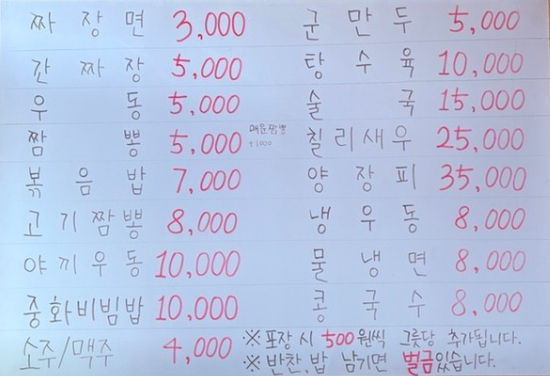 짜장면 3,000
간짜장 5,000
우동 5,000
짬뽕 5,000 매운짬뽕
+1000
볶음밥 7,000
고기짬뽕 8,000
야끼우동 10,000
중화비빔밥 10,000
소주/맥주 4,000
군만두 5,000
탕수육 10,000
술국 15,000
칠리새우 25,000
양장피 35,000
냉우동 8,000
물냉면 8,000
콩국수 8,000
※ 포장 시 500원씩 그릇당 추가됩니다.
※ 반찬,밥 남기면 벌금있습니다.